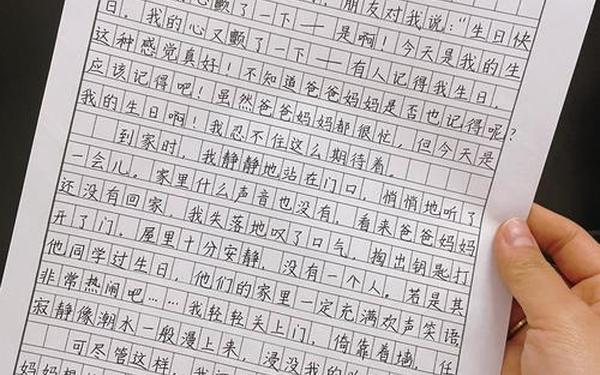 心颤了一下——朋友对我说："生日快
日。我的心又颤了一下——是啊!今天是我的生
这种感觉真好!不知道爸爸妈妈是否也记得呢?
应该记得吧!虽然爸爸妈妈都很忙,但今天是
我的生日啊!我忍不住这么期待着。
到家时,我静静地站在门口,悄悄地听了
一会儿。家里什么声音也没有,看来爸爸妈妈
还没有回家。我失落地叹了口气,掏出钥匙打
开了门。屋里十分安静,没有一个人。若是其
他同学过生日,他们的家里一定充满欢声笑语,
非常热闹吧……我轻轻关上门,倚靠着墙,任
寂静像潮水一般漫上来,浸没我的
可尽管这样,我
妈妈